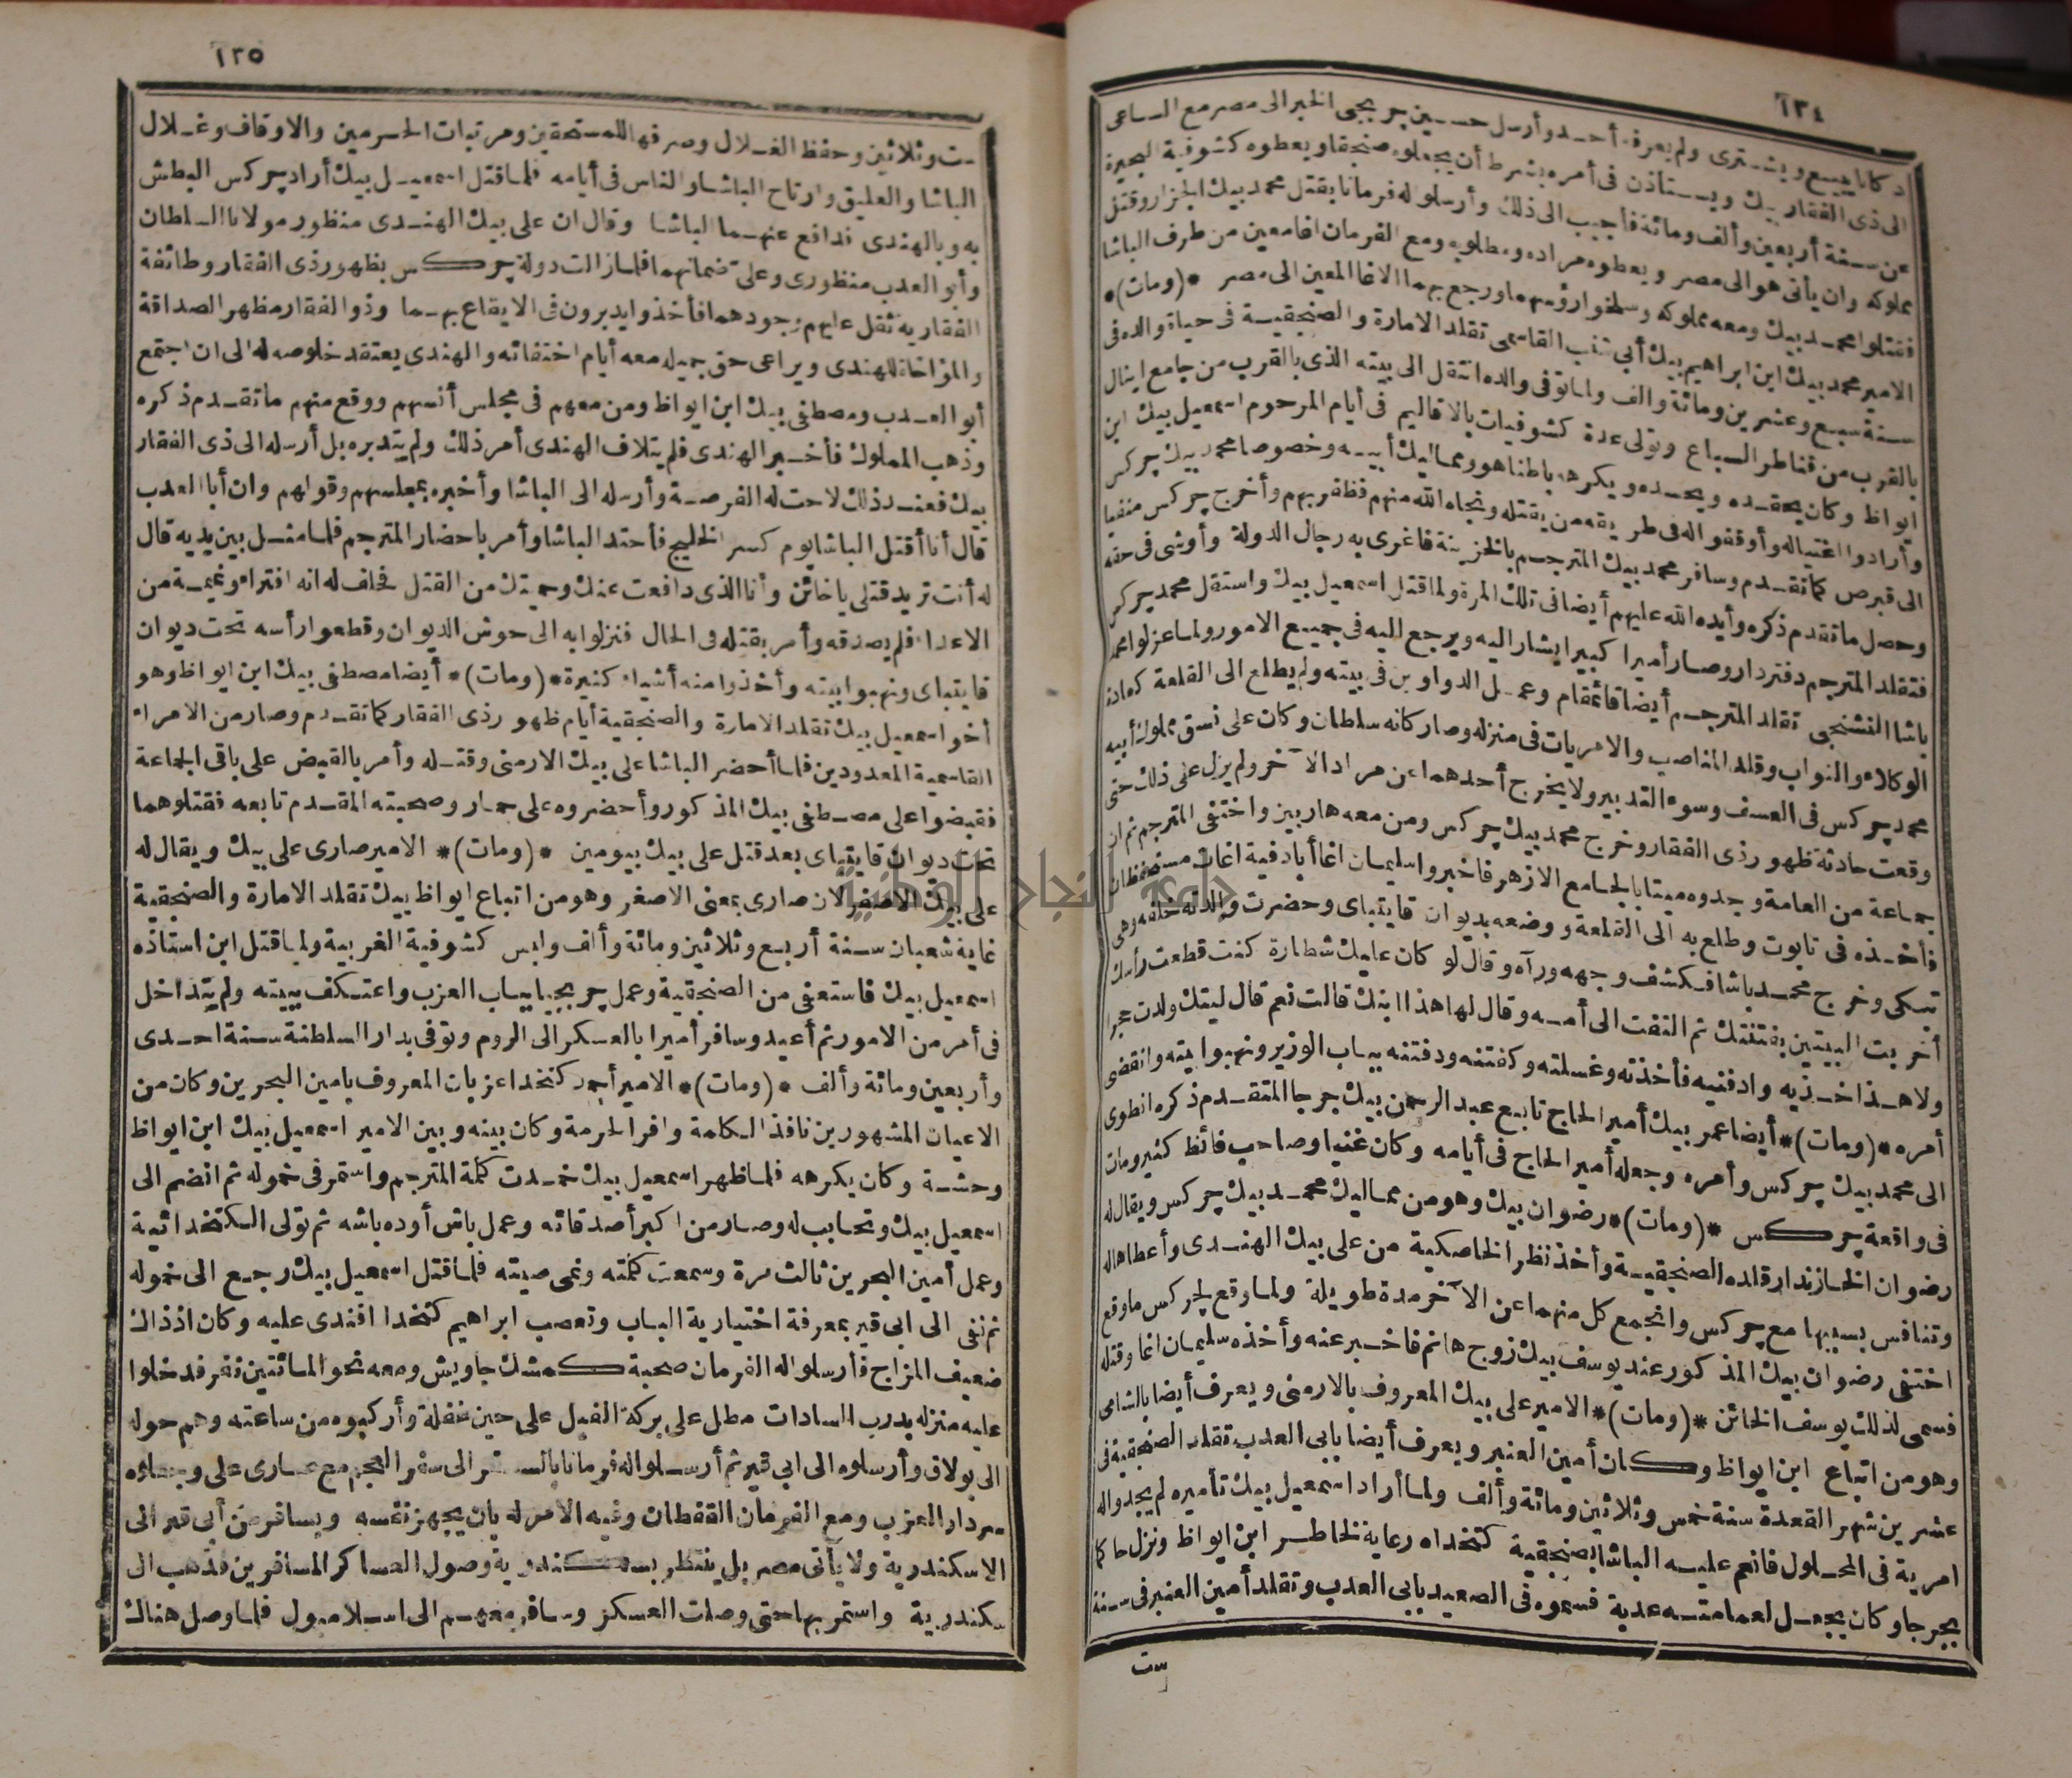 ١٣٤
دكانا يبيع ويشترى ولم يعرفه أحد وأرسل حسين جربجى الخبر الى مصر مع الساعى
الى ذى الفقار بيك ويستاذن فى أمره بشرط أن يجعلوه صنجقا ويعطوه كشوفية البحيرة
عن سنة أربعين وألف ومائة فأجيب الى ذلك وأرسلوا له فرمانا بقتل محمد بيك الجزار وقتل
مملوكه وان يأتى هو الى مصر ويعطوه مراده ومطلوبه ومع الفرمان اغا معين من طرف الباشا
فقتلوا محمد بيك ومعه مملوكه وسلخوا رؤسهما ورجع بهما الاغا المعين الى مصر *(ومات)*
الامير محمد بيك ابن ابراهيم بيك أبى شنب القاسمى تقلد الامارة والصنجقية فى حياة والده فى
سنة سبع وعشرين ومائة والف ولما توفى والده انتقل الى بيته الذى بالقرب من جامع اينال
بالقرب من قناطر السباع وتولى عدة كشوفيات بالاقاليم فى أيام المرحوم اسمعيل بيك ابن
ايواظ وكان يحقده ويحسده ويكرهه باطنا هو ومماليك أبيه وخصوصا محمد بيك جركس
وأرادوا اغتياله وأوقفوا له فى طريقه من يقتله ونجاه الله منهم فظفر بهم وأخرج جركس منفيا
الى قبرص كما تقدم وسافر محمد بيك المترجم بالخزينة فاغرى به رجال الدولة وأوشى فى حقه
وحصل ما تقدم ذكره وأيده الله عليهم أيضا فى تلك المرة ولما قتل اسمعيل بيك واستقل محمد جركس
فتقلد المترجم دفتردار وصار أميرا كبيرا يشار اليه ويرجع اليه فى جميع الامور ولما عزلوا محمد
باشا النشنجى تقلد المترجم أيضا قائمقام وعمل الدواوين فى بيته ولم يطلع الى القلعة كعادة
الوكلاء والنواب وقلد المناصب والامريات فى منزله وصار كانه سلطان وكان على نسق مملوك أبيه
محمد جركس فى العسف وسوء التدبير ولا يخرج أحدهما عن مراد الآخر ولم يزل على ذلك حتى
وقعت حادثة ظهور ذى الفقار وخرج محمد بيك جركس ومن معه هاربين واختفى المترجم ثم ان
جماعة من العامة وجدوه ميتا بالجامع الازهر فاخبروا سليمان اغا أبا دفية اغات مستحفظان
فأخذه فى تابوت وطلع به الى القلعة ووضعه بديوان قايتباى وحضرت والدته خلفه وهى
تبكى وخرج محمد باشا فكشف وجهه ورآه وقال لو كان عليك شطارة كنت قطعت رأسك
أخربت البيتين بفتنتك ثم التفت الى أمه وقال لها هذا ابنك قالت نعم قال ليتك ولدت حجرا
ولا هذا خذيه وادفنيه فأخذته وغسلته وكفنته ودفنته بباب الوزير ونهبوا بيته وانقضى
أمره *(ومات)* أيضا عمر بيك أمير الحاج تابع عبد الرحمن بيك جرجا المتقدم ذكره انطوى
الى محمد بيك جركس وأمره وجعله أمير الحاج فى أيامه وكان غنيا وصاحب فائظ كثير ومات
فى واقعة جركس *(ومات)* رضوان بيك وهو من مماليك محمد بيك جركس ويقال له
رضوان الخازندار قلده الصنجقية وأخذ نظر الخاصكية من على بيك الهندى وأعطاها له
وتنافس بسببها مع جركس وانجمع كل منهما عن الآخر مدة طويلة ولما وقع لجركس ما وقع
اختفى رضوان بيك المذكور عند يوسف بيك زوج هانم فاخبر عنه وأخذه سليمان اغا وقتله
فسمى لذلك يوسف الخائن *(ومات)* الامير على بيك المعروف بالارمنى ويعرف أيضا بالشامى
وهو من اتباع ابن ايواظ وكان أمين العنبر ويعرف أيضا بابى العدب تقلد الصنجقية فى
عشرين شهر القعدة سنة خمس وثلاثين ومائة وألف ولما أراد اسمعيل بيك تأميره لم يجدوا له
امرية فى المحلول فانعم عليه الباشا بصنجقية كتخداه رعاية لخاطر ابن ايواظ ونزل حاكما
بجرجا وكان يجعل لعمامته عدبة فسموه فى الصعيد بابى العدب وتقلد أمين العنبر فى سنة
ست
١٣٥
ست وثلاثين وحفظ الغلال وصرفها للمستحقين ومرتبات الحرمين والاوقاف وغلال
الباشا والعليق وارتاح الباشا والناس فى أيامه فلما قتل اسمعيل بيك أراد جركس البطش
به وبالهندى فدافع عنهما الباشا وقال ان على بيك الهندى منظور مولانا السلطان
وأبو العدب منظورى وعلىّ ضمانهما فلما زالت دولة جركس بظهور ذى الفقار وطائفة
الفقارية ثقل عليهم وجودهما فأخذوا يدبرون فى الايقاع بهما وذو الفقار مظهر الصداقة
والمؤاخاة للهندى ويراعى حق جميله معه أيام اختفائه والهندى يعتقد خلوصه له الى ان اجتمع
أبو العدب ومصطفى بيك ابن ايواظ ومن معهم فى مجلس أنسهم ووقع منهم ما تقدم ذكره
وذهب المملوك فأخبر الهندى فلم يتلاف الهندى أمر ذلك ولم يتدبره بل أرسله الى ذى الفقار
بيك فعند ذلك لاحت له الفرصة وأرسله الى الباشا وأخبره بمجلسهم وقولهم وان أبا العدب
قال أنا أقتل الباشا يوم كسر الخليج فأحتد الباشا وأمر باحضار المترجم فلما مثل بين يديه قال
له أنت تريد قتلى يا خائن وأنا الذى دافعت عنك وحميتك من القتل فحلف له انه افتراء ونميمة من
الاعداء فلم يصدقه وأمر بقتله فى الحال فنزلوا به الى حوش الديوان وقطعوا رأسه تحت ديوان
قايتباى ونهبوا بيته وأخذوا منه أشياء كثيرة *(ومات)* أيضا مصطفى بيك ابن ايواظ وهو
أخو اسمعيل بيك تقلد الامارة والصنجقية أيام ظهور ذى الفقار كما تقدم وصار من الامراء
القاسمية المعدودين فلما أحضر الباشا على بيك الارمنى وقتله وأمر بالقبض على باقى الجماعة
فقبضوا على مصطفى بيك المذكور وأحضروه على حمار وصحبته المقدم تابعه فقتلوهما
تحت ديوان قايتباى بعد قتل على بيك بيومين *(ومات)* الامير صارى على بيك ويقال له
على بيك الاصفر لان صارى بمعنى الاصفر وهو من اتباع ايواظ بيك تقلد الامارة والصنجقية
غاية شعبان سنة أربع وثلاثين ومائة وألف ولبس كشوفية الغربية ولما قتل ابن استاذه
اسمعيل بيك فاستعفى من الصنجقية وعمل جربجيا بباب العزب واعتكف ببيته ولم يتداخل
فى أمر من الامور ثم أعيد وسافر أميرا بالعسكر الى الروم وتوفى بدار السلطنة سنة احدى
وأربعين ومائة وألف *(ومات)* الامير أحمد كتخدا عزبان المعروف بامين البحرين وكان من
الاعيان المشهورين نافذ الكلمة وافر الحرمة وكان بينه وبين الامير اسمعيل بيك ابن ايواظ
وحشة وكان يكرهه فلما ظهر اسمعيل بيك خمدت كلمة المترجم واستمر فى خموله ثم انضم الى
اسمعيل بيك وتحابب له وصار من اكبر أصدقائه وعمل باش أوده باشه ثم تولى الكتخدائية
وعمل أمين البحرين ثالث مرة وسمعت كلمته ونمى صيته فلما قتل اسمعيل بيك رجع الى خموله
ثم نفى الى ابى قير بمعرفة اختيارية الباب وتعصب ابراهيم كتخدا افندى عليه وكان اذ ذاك
ضعيف المزاج فأرسلوا له الفرمان صحبة كمشك جاويش ومعه نحو المائتين نفر فدخلوا
عليه منزله بدرب السادات مطل على بركة الفيل على حين غفلة وأركبوه من ساعته وهم حوله
الى بولاق وأرسلوه الى ابى قير ثم أرسلوا له فرمانا بالسفر الى سفر العجم مع صارى على وجعلوه
سردار العزب ومع الفرمان القفطان وفيه الامر له بان يجهز نفسه ويسافر من أبى قير الى
الاسكندرية ولا يأتى مصر بل ينتظر بسكندرية وصول العساكر المسافرين فذهب الى
سكندرية واستمر بها حتى وصلت العسكر وسافر معهم الى اسلامبول فلما وصل هناك
جامعة النجاح الوطنية